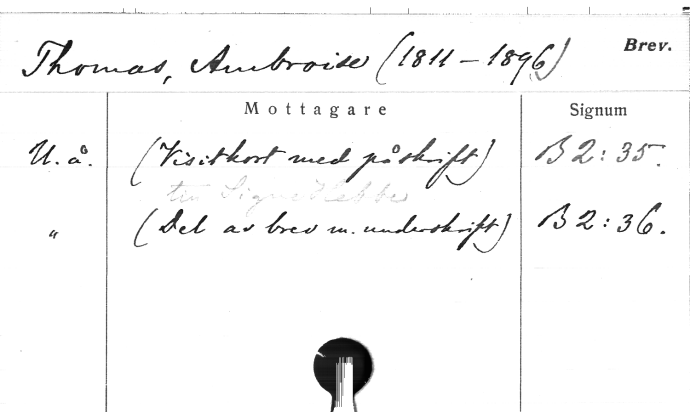 Thomas, Ambroise (1811–1896) Brev.
Mottagare Signum
U. å. (Visitkort med påskrift) B2:35.
till Signe Hebbe
" (Del av brev m. underskrift) B2:36.